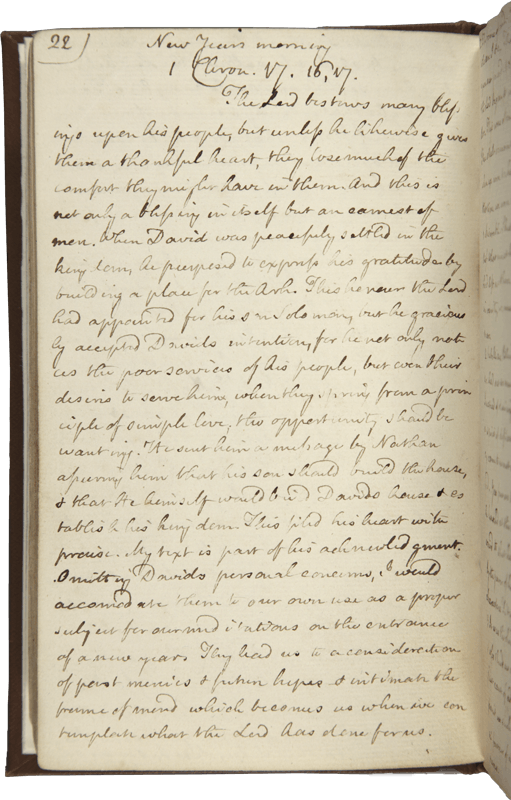 22
New Years morning
1 Chron. 17. 16, 17.
The Lord bestows many bless
ings upon his people, but unless he likewise gives
them a thankful heart, they lose much of the
comfort they might have in them. And this is
not only a blessing in itself but an earnest of
more. When David was peacefully settled in the
kingdom, he purposed to express his gratitude by
building a place for the Ark. This honour the Lord
had appointed for his son Solomon, but he gracious
ly accepted Davids intention, for he not only noti
ces the poor services of his people, but even their
desires to serve him, when they spring from a prin
ciple of simple love, tho opportunity should be
wanting. He sent him a message by Nathan
assuring him that his son should build the house,
& that He himself would build Davids house & es
tablish his kingdom. This filled his heart with
praise. My text is part of his acknowledgment.
Omitting Davids personal concerns, I would
accomodate them to our own use as a proper
subject for our meditations on the entrance
of a new year. They lead us to a consideration
of past mercies & future hopes & intimate the
frame of mind which becomes us when we con
template what the Lord has done for us.